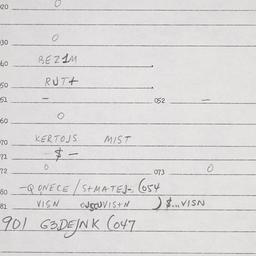 020 0
030 0
060 BEZ1M
050 RUT+
051 – 052 –
060 0
070 KERTOJS MIST
071 $ –
072 0 073 0
080 –QONECE / S+MATES–. (054
081 VISN VIS+N ) $...VISN
901 G3DEJNK (047